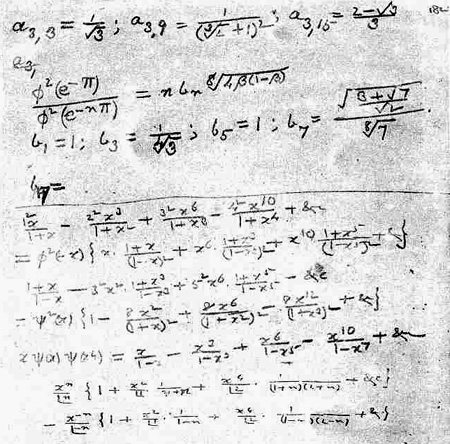 a₃,₃ = 1/√3 ; a₃,₉ = 1/(∛2+1)² ; a₃,₁₅ = (2-√3)/3
a₃,
φ²(e^-π)/φ²(e^-nπ) = n bₙ ⁸√(4β(1-β))
b₁ = 1 ; b₃ = 1/∜3 ; b₅ = 1 ; b₇ = √((3+√7)/√2)/⁸√7
b₉ =
1²x/(1+x) - 2²x³/(1+x²) + 3²x⁶/(1+x³) - 4²x¹⁰/(1+x⁴) + &c
= φ²(-x) { x · (1+x)/(1-x)² + x⁶ · (1+x³)/(1-x³)² + x¹⁰ (1+x⁵)/(1-x⁵)² + &c }
(1+x)/(1-x) - 3²x² · (1+x³)/(1-x³) + 5²x⁶ · (1+x⁵)/(1-x⁵) - &c
= ψ²(x) { 1 - 8x²/(1+x)² + 8x⁶/(1+x²)² - 8x¹²/(1+x³)² + &c }
x ψ(x) ψ(x⁴) = x/(1-x) - x³/(1-x³) + x⁶/(1-x⁵) - x¹⁰/(1-x⁷) + &c
xⁿ/n { 1 + x²/ · 1/(1+n) + x⁴/2 · 1/(1+n)(2+n) + &c }
- x⁻ⁿ/-n { 1 + x²/ · 1/(1-n) + x⁴/2 · 1/(1-n)(2-n) + & }